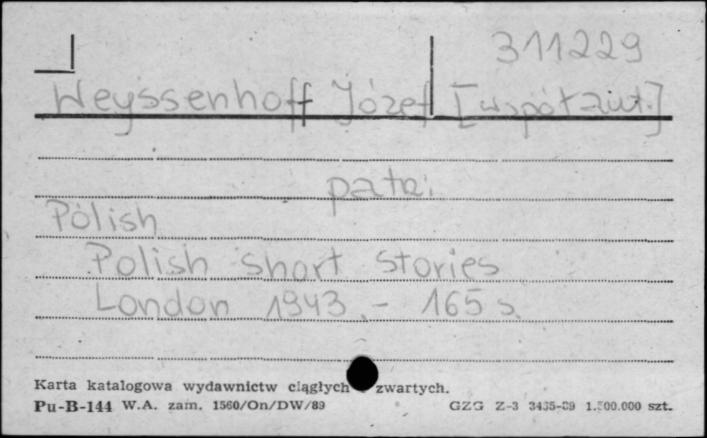 311229
Weyssenhoff Józef [współaut.]
patrz:
Polish
Polish short stories
London 1943. - 165 s.
Karta katalogowa wydawnictw ciągłych zwartych.
Pu-B-144 W.A. zam. 1560/On/DW/89 GZG Z-3 3435-89 1.500.000 szt.